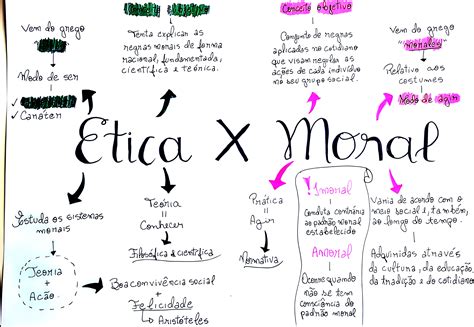 Vem do grego
Modo de ser
✓ Caráter
Tenta explicar as
regras morais de forma
racional, fundamentada,
científica e teórica.
Conceito objetivo
Conjunto de regras
aplicadas no cotidiano
que visam regular as
ações de cada indivíduo
no seu grupo social.
Vem do grego
"Morales"
Relativo aos
costumes
Modo de agir
Ética X Moral
Estuda os sistemas
morais
Teoria
+
Ação
Teoria
=
Conhecer
Filosófica e científica
Boa convivência social
+
Felicidade
→ Aristóteles
Prática
=
Agir
Normativa
! Imoral
Conduta contrária
ao padrão moral
estabelecido
Amoral
Ocorre quando
não se tem
consciência do
padrão moral
Varia de acordo com o
meio social e, também,
ao longo do tempo.
Adquiridas através
da cultura, da educação,
da tradição e do cotidiano